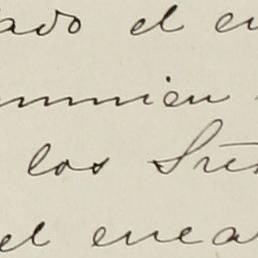 ado el en
los Sres
el enca